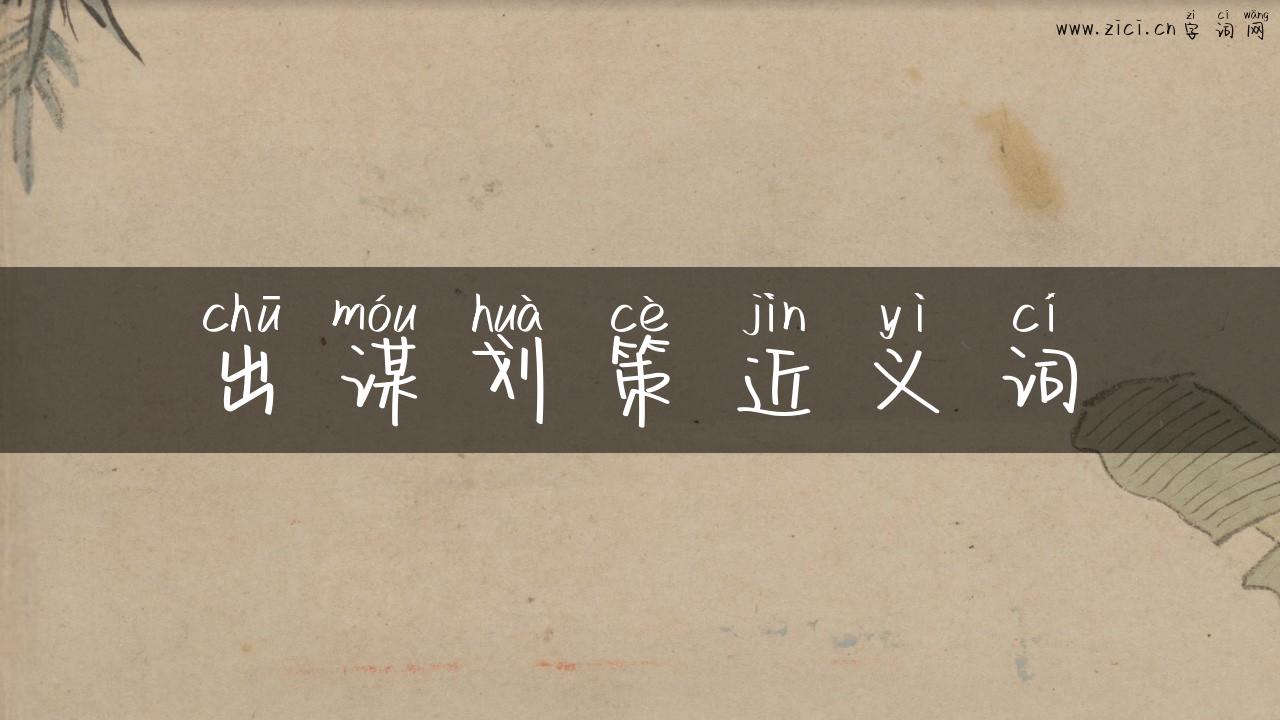 zì cí wǎng
www.zici.cn 字词网
chū móu huà cè jìn yì cí
出谋划策近义词